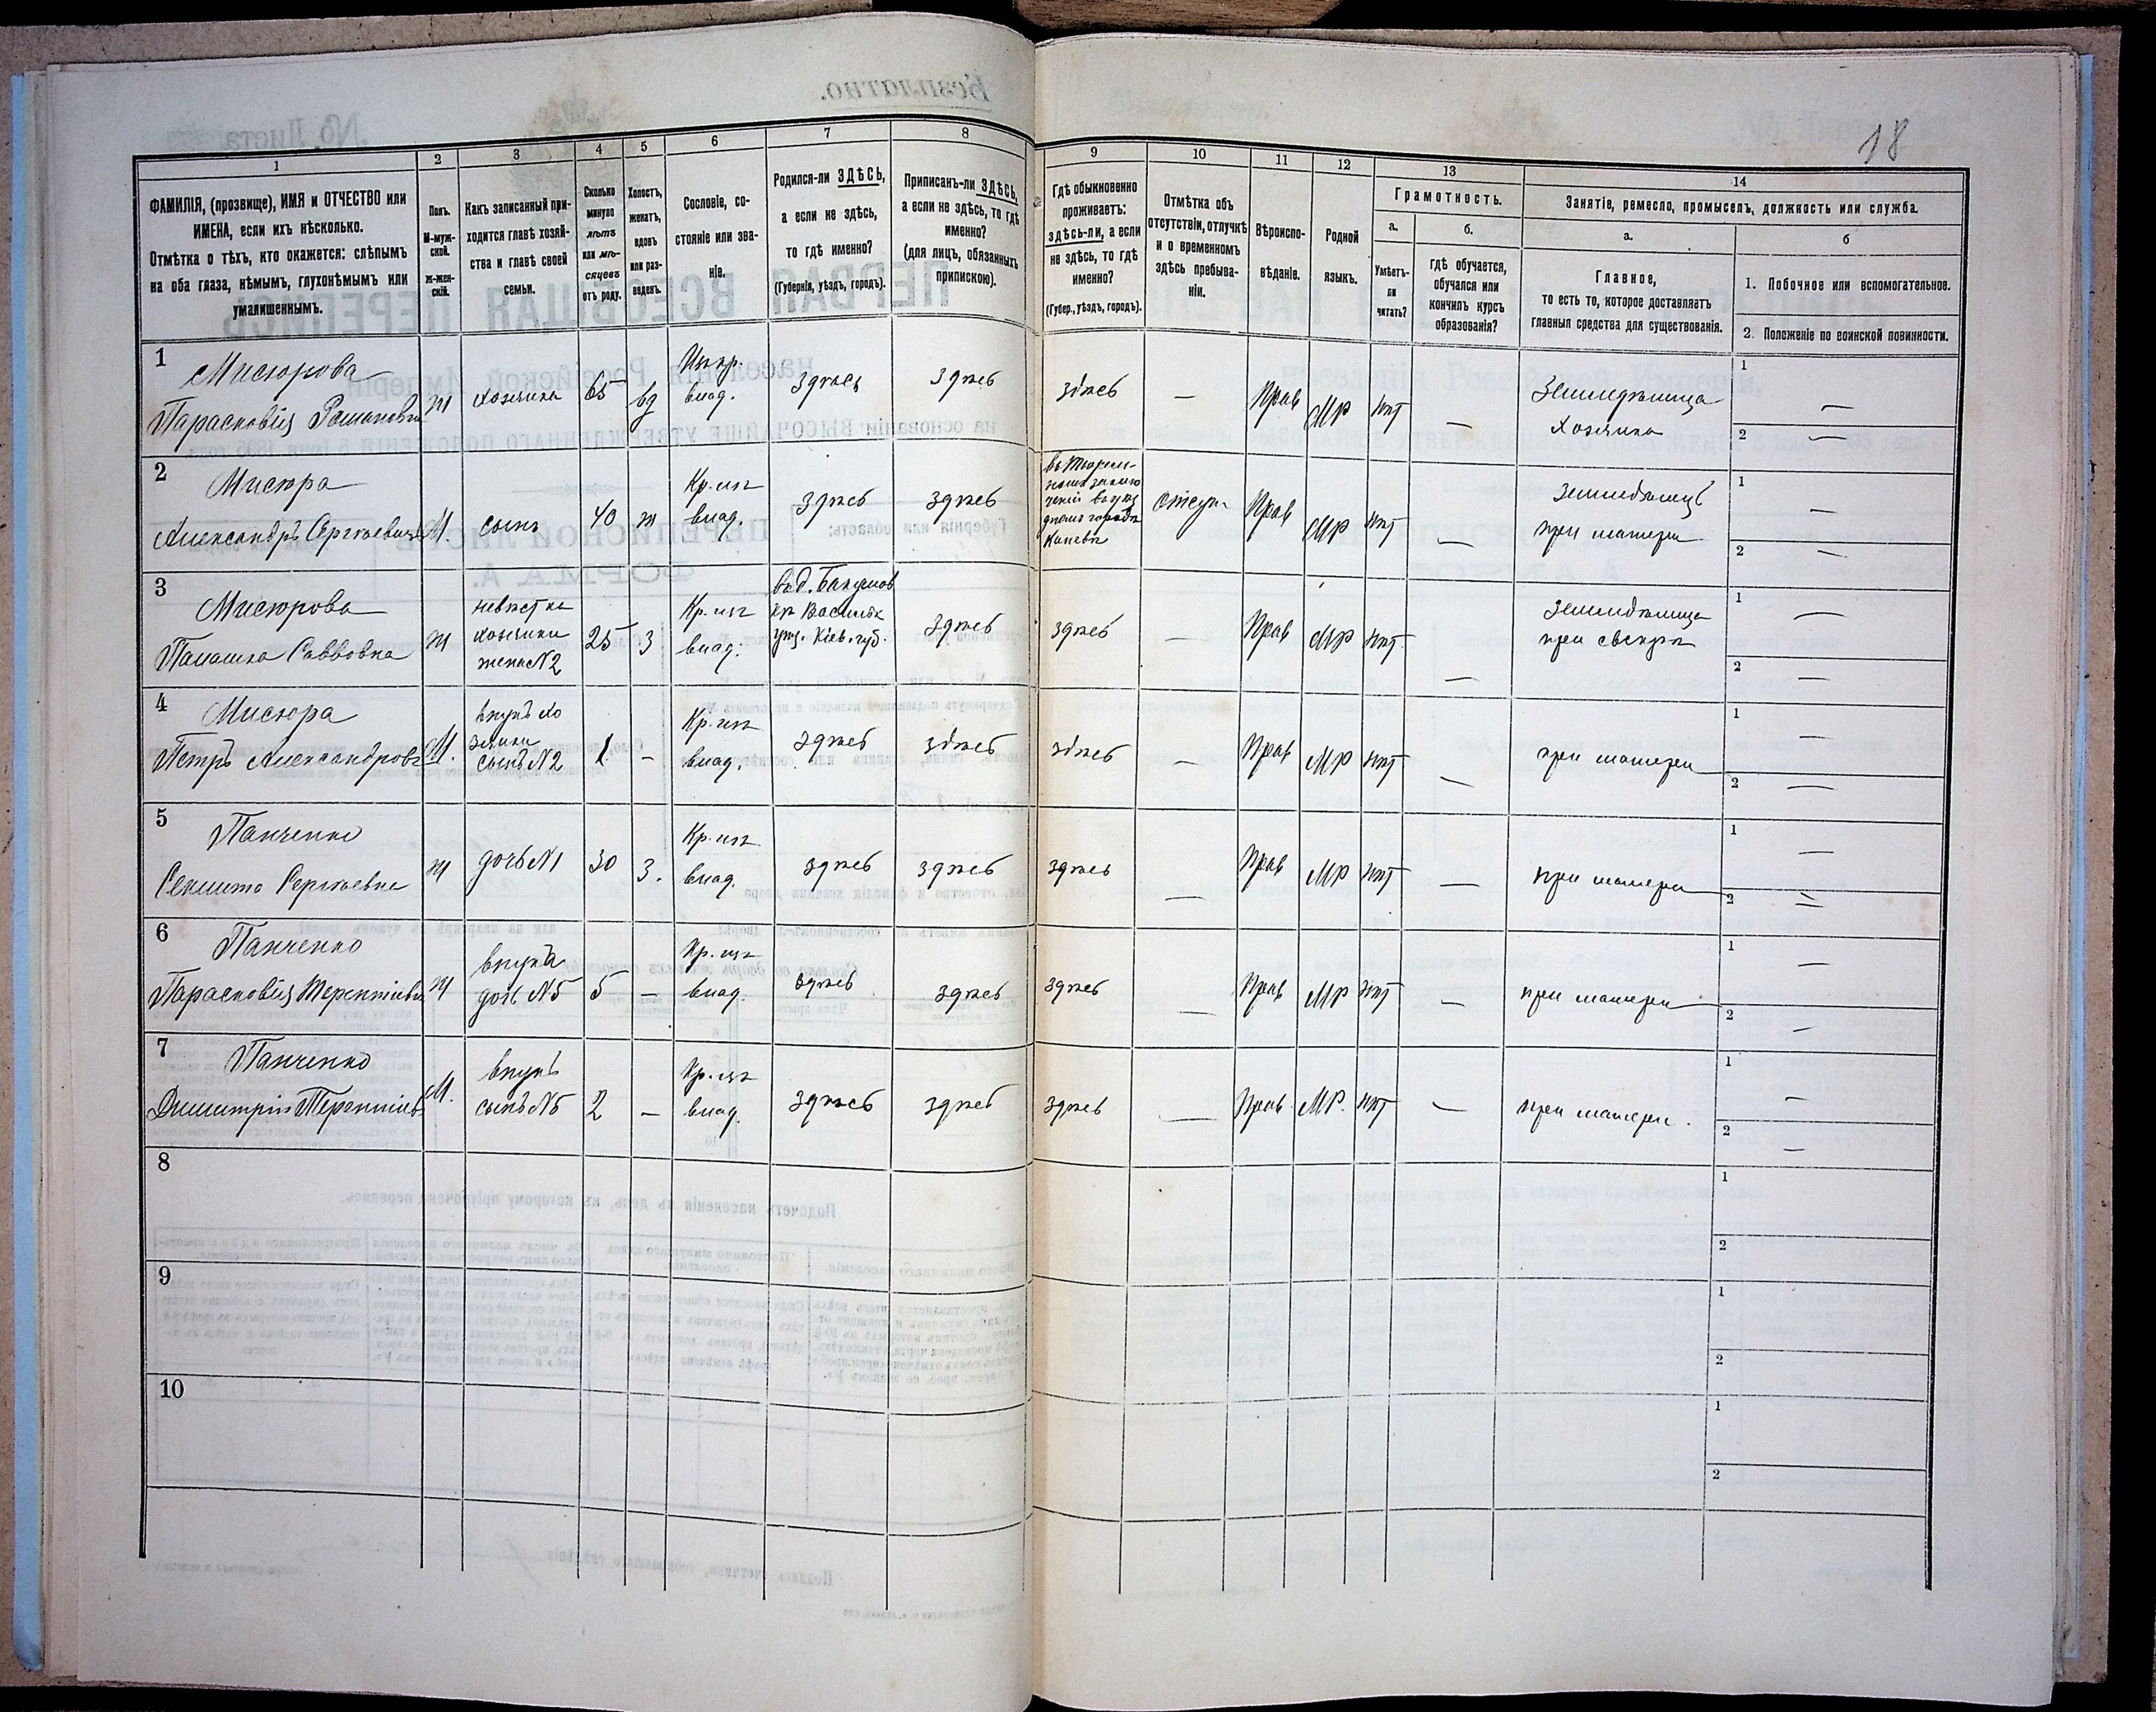 18
1
ФАМИЛІЯ, (прозвище), ИМЯ и ОТЧЕСТВО или
ИМЕНА, если ихъ нѣсколько.
Отмѣтка о тѣхъ, кто окажется: слѣпымъ
на оба глаза, нѣмымъ, глухонѣмымъ или
умалишеннымъ.
2
Полъ.
М-муж-
ской.
ж-жен-
скій.
3
Какъ записанный при-
ходится главѣ хозяй-
ства и главѣ своей
семьи.
4
Сколько
минуло
лѣтъ
или мѣ-
сяцевъ
отъ роду.
5
Холостъ,
женатъ,
вдовъ
или раз-
веденъ.
6
Сословіе, со-
стояніе или зва-
ніе.
7
Родился-ли ЗДѢСЬ,
а если не здѣсь,
то гдѣ именно?
(Губернія, уѣздъ, городъ).
8
Приписанъ-ли ЗДѢСЬ,
а если не здѣсь, то гдѣ
именно?
(для лицъ, обязанныхъ
припискою).
9
Гдѣ обыкновенно
проживаетъ:
здѣсь-ли, а если
не здѣсь, то гдѣ
именно?
(Губер., уѣздъ, городъ).
10
Отмѣтка объ
отсутствіи, отлучкѣ
и о временномъ
здѣсь пребыва-
ніи.
11
Вѣроиспо-
вѣданіе.
12
Родной
языкъ.
13
Грамотность.
а.
Умѣетъ-
ли
читать?
б.
гдѣ обучается,
обучался или
кончилъ курсъ
образованія?
14
Занятіе, ремесло, промыселъ, должность или служба.
а.
Главное,
то есть то, которое доставляетъ
главныя средства для существованія.
б
1. Побочное или вспомогательное.
2. Положеніе по воинской повинности.
1
Мисюрова
Парасковія Романовна
ж
хозяика
65
вд
влад.
здѣсь
здѣсь
здѣсь
—
Прав
МР
нѣт
—
Земледѣлица
Хозяика
1 —
2 —
2
Мисюра
Александръ Сергѣевичъ
М.
сынъ
40
ж
Кр. изъ
влад.
здѣсь
здѣсь
Канева
отсут.
Прав
МР
нѣт
—
земледѣлецъ
при матери
1 —
2 —
3
Мисюрова
Палашка Саввовна
ж
невѣстка
хозяики
жена N2
25
з
Кр. изъ
влад.
Васильк
уѣз. Кіев. губ.
здѣсь
здѣсь
—
Прав
МР
нѣт
—
земледѣлица
при свекрѣ
1 —
2 —
4
Мисюра
Петръ Александровъ
М.
внукъ хо
зяики
сынъ N2
1
–
Кр. изъ
влад.
здѣсь
здѣсь
здѣсь
—
Прав
МР
нѣт
—
при матери
1 —
2 —
5
Панченко
Сергѣевна
ж
дочь N1
30
з.
Кр. изъ
влад.
здѣсь
здѣсь
здѣсь
—
Прав
МР
нѣт
—
при матери
1 —
2 —
6
Панченко
Парасковія Терентіевн
ж
внука
дочь N5
5
—
Кр. изъ
влад.
здѣсь
здѣсь
здѣсь
—
Прав
МР
нѣт
—
при матери
1 —
2 —
7
Панченко
Димитрій Терентіев
М.
внукъ
сынъ N5
2
—
Кр. изъ
влад.
здѣсь
здѣсь
здѣсь
—
Прав.
МР.
нѣт
—
при матери.
1 —
2 —
8
1
2
9
1
2
10
1
2